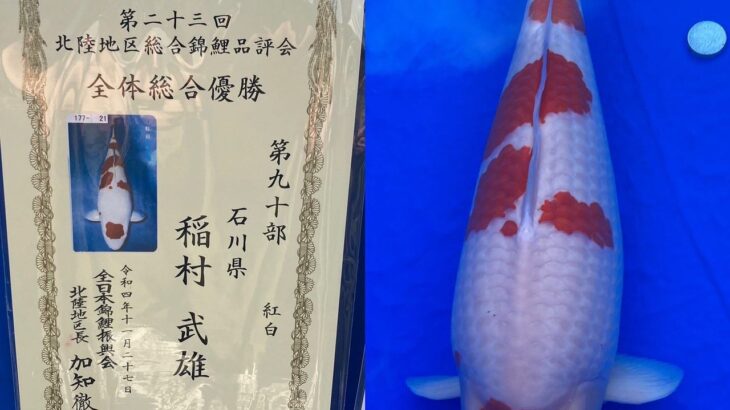 第二十三回
北陸地区総合錦鯉品評会
全体総合優勝
177- 21
第九十部
紅白
石川県
稲村武雄
令和四年十一月二十七日
全日本錦鯉振興会
北陸地区長 加知徹